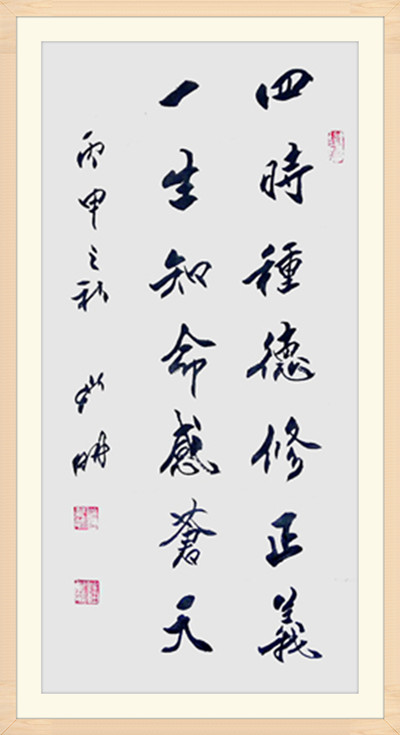 四時種德修正義
一生知命感蒼天
丙申之秋
明